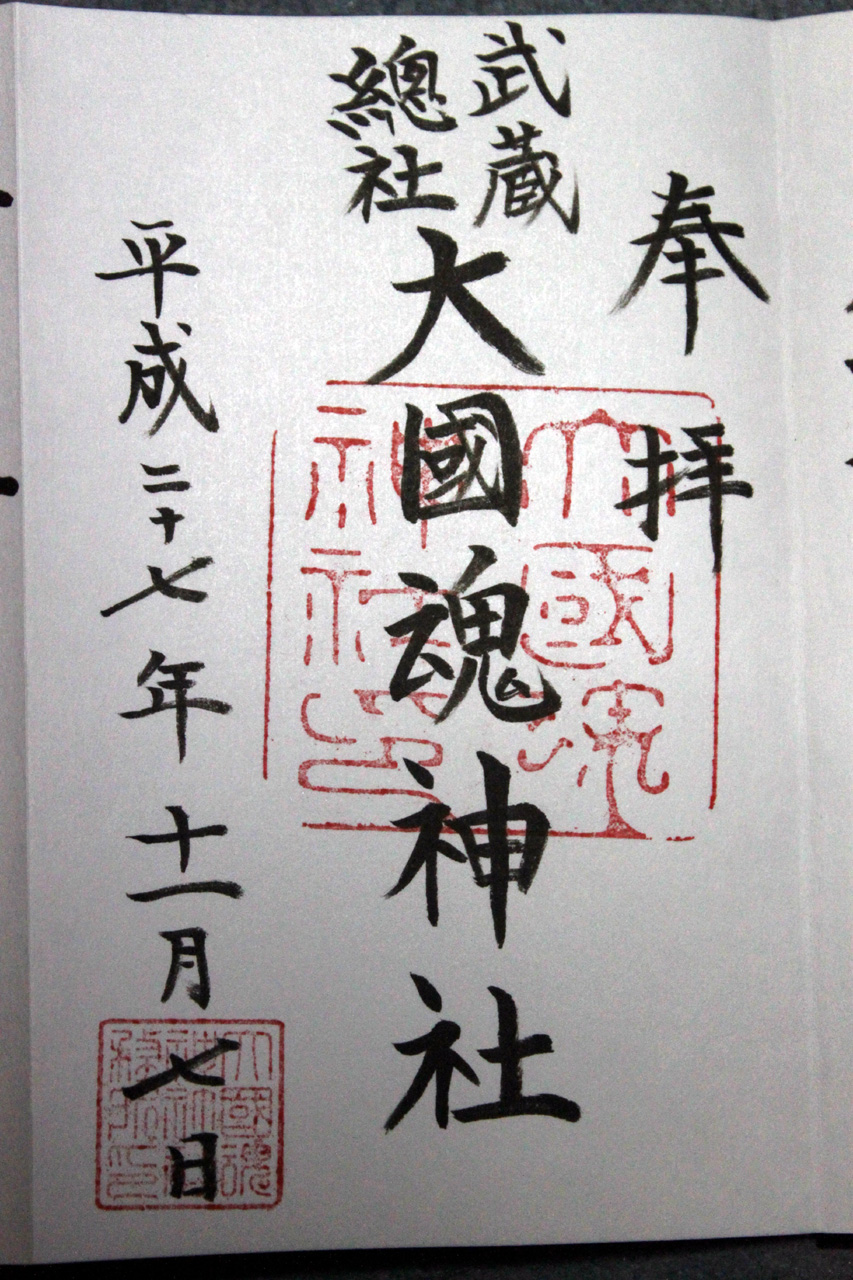 奉拝
武蔵
總社
大國魂神社
平成二十七年十一月七日
大國魂
神社印
大國魂
神社